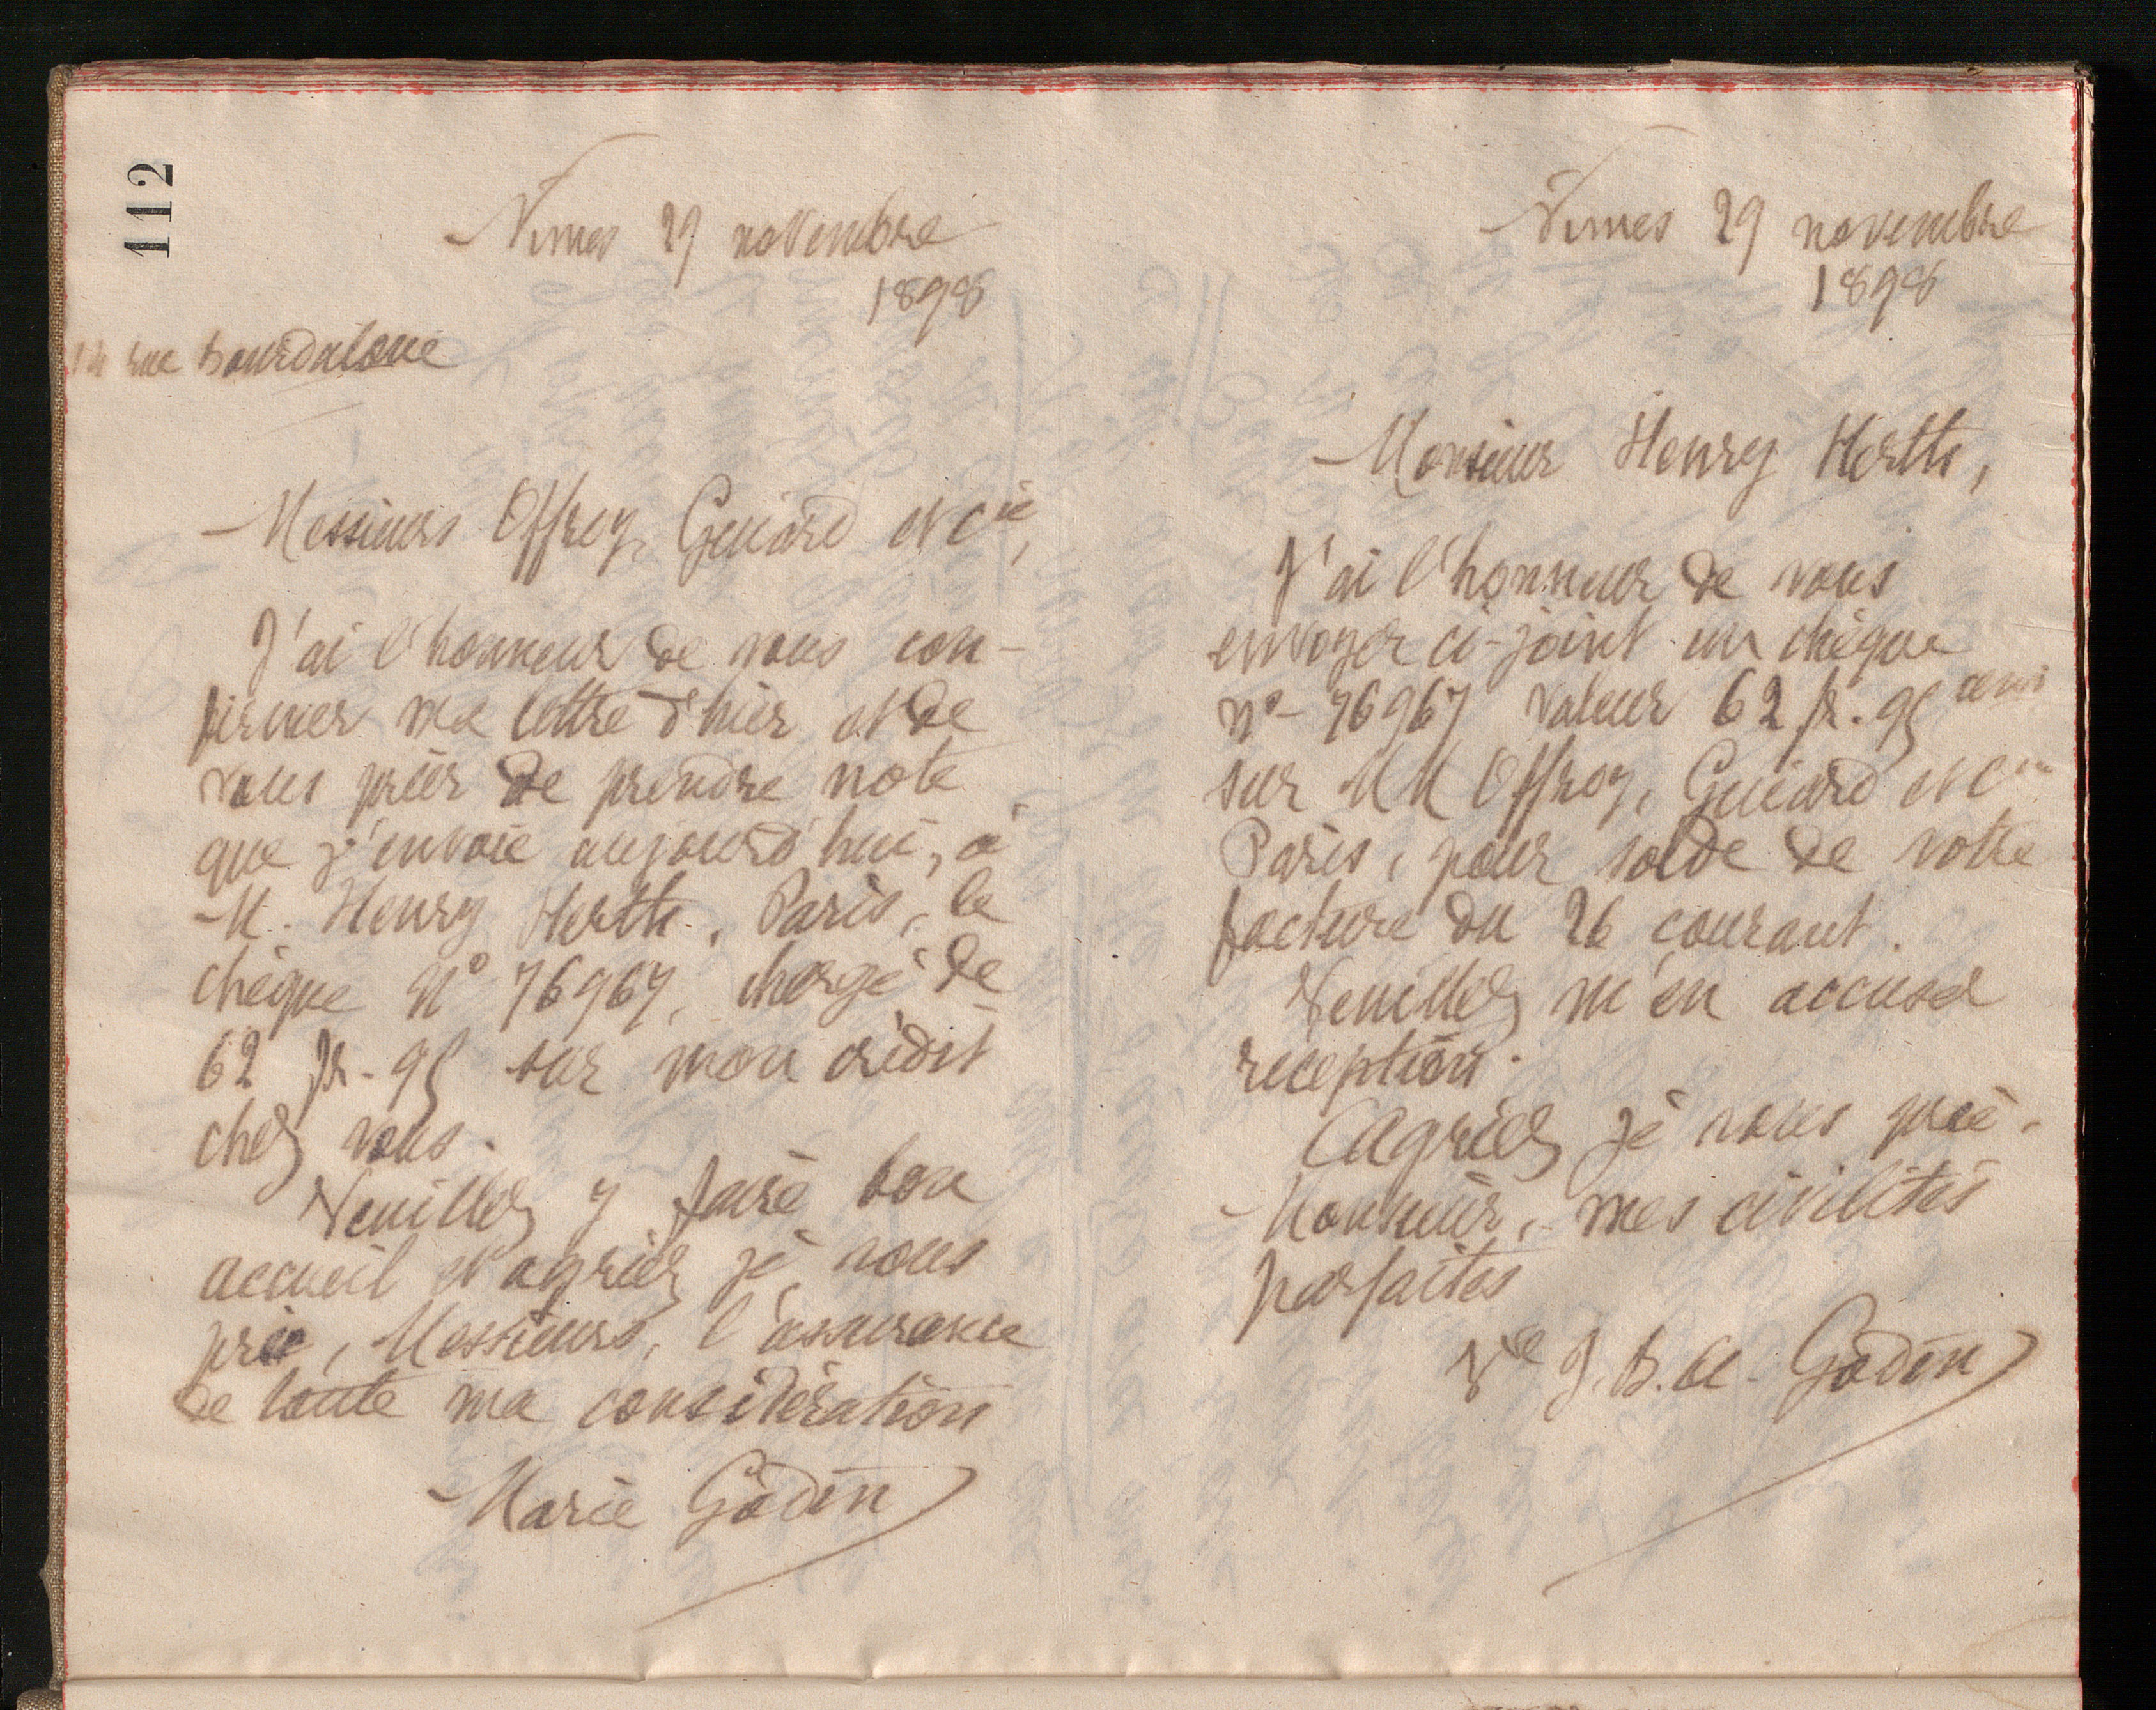 112
Nimes 29 novembre
1898
14 rue Bourdaloue
Messieurs Offroy, Guiard et Cie,
J'ai l'honneur de vous con-
firmer ma lettre d'hier et de
vous prier de prendre note
que j'envoie aujourd'hui, à
M. Henry Herth, Paris, le
chèque N° 76967, chargé de
62 fr. 95 sur mon crédit
chez vous.
Veuillez y faire bon
accueil et agréez je vous
prie, Messieurs, l'assurance
de toute ma considération
Marie Godin
Nimes 29 novembre
1898
Monsieur Henry Herth,
J'ai l'honneur de vous
envoyer ci-joint un chèque
n° 76967 valeur 62 fr. 95 cent
sur MM Offroy, Guiard et Cie
Paris, pour solde de votre
facture du 26 courant.
Veuillez m'en accuser
reception.
Agréez je vous prie,
Monsieur, mes civilités
parfaites
Vve J. B. A. Godin